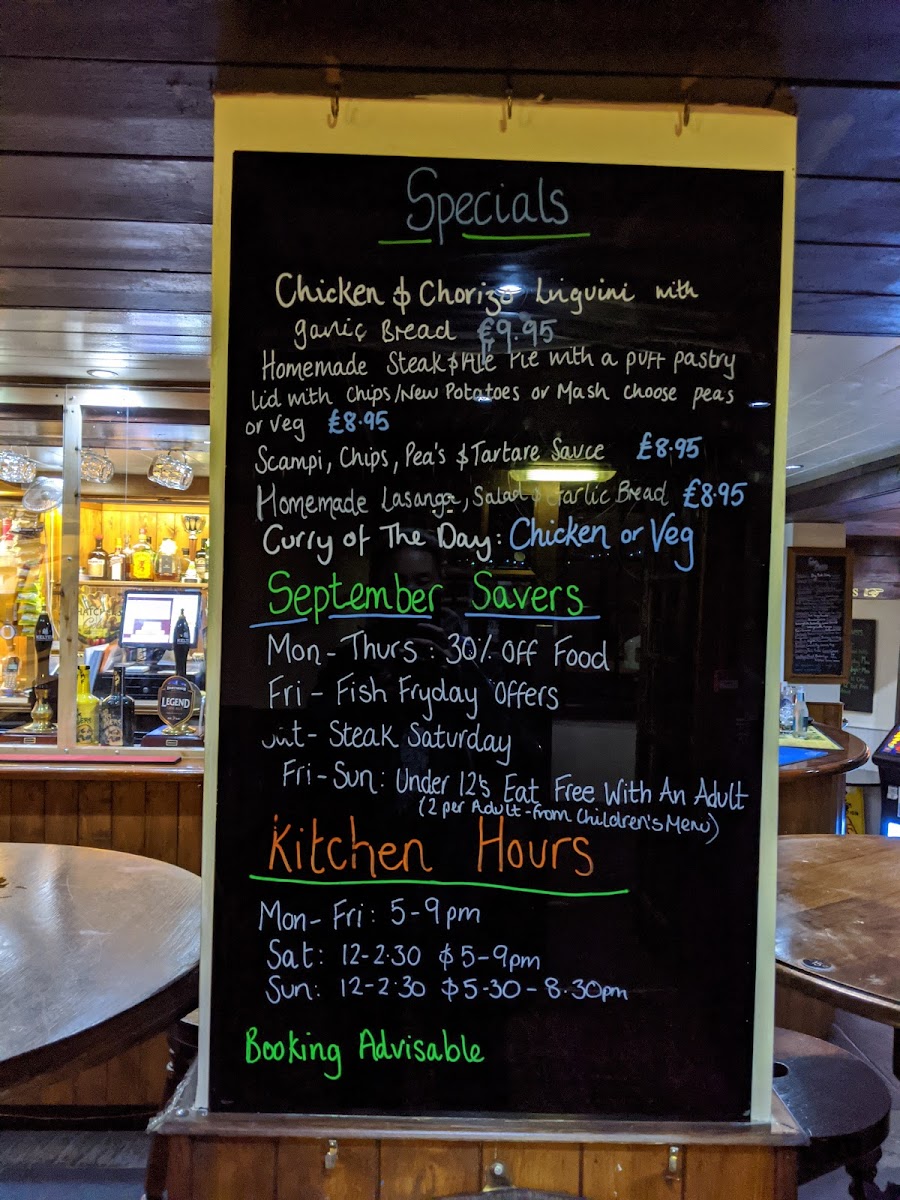 Specials
Chicken & Chorizo Linguini with
garlic Bread £9.95
Homemade Steak & Ale Pie with a puff pastry
lid with Chips/New Potatoes or Mash choose pea's
or veg £8.95
Scampi, Chips, Pea's & Tartare Sauce £8.95
Homemade Lasange, Salad & Garlic Bread £8.95
Curry of The Day: Chicken or Veg
September Savers
Mon-Thurs: 30% Off Food
Fri - Fish Fryday Offers
Sat - Steak Saturday
Fri-Sun: Under 12's Eat Free With An Adult
(2 per Adult-from Children's Menu)
Kitchen Hours
Mon-Fri: 5-9pm
Sat: 12-2.30 & 5-9pm
Sun: 12-2.30 & 5-30-8.30pm
Booking Advisable
LEGEND